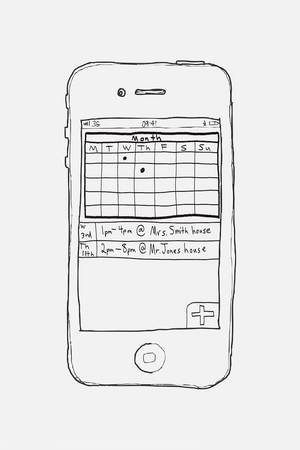 3G 09:41
Month
M T W Th F S Su
W 3rd 1pm-4pm @ Mrs. Smith house
Th 11th 2pm-8pm @ Mr. Jones house